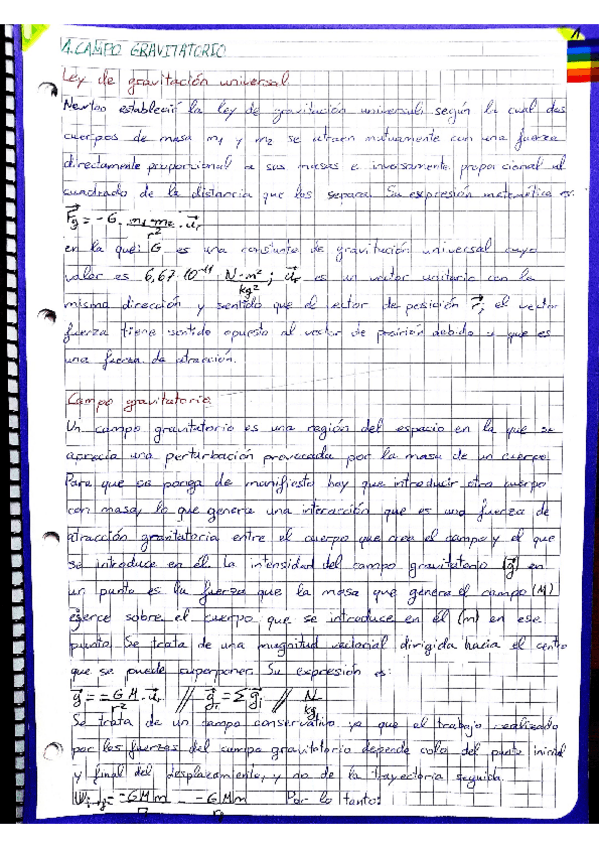 1
1. CAMPO GRAVITATORIO
Ley de gravitación universal
Newton estableció la ley de gravitación universal, según la cual dos
cuerpos de masa m1 y m2 se atraen mutuamente con una fuerza
directamente proporcional a sus masas e inversamente proporcional al
cuadrado de la distancia que los separa. Su expresión matemática es:
F⃗g = -G · m1·m2/r² · u⃗r
en la que: G es una constante de gravitación universal cuyo
valor es 6,67·10⁻¹¹ N·m²/kg²; u⃗r es un vector unitario con la
misma dirección y sentido que el ector de posición r⃗, el vector
fuerza tiene sentido opuesto al vector de posición debido a que es
una fuerza de atracción.
Campo gravitatorio
Un campo gravitatorio es una región del espacio en la que se
aprecia una perturbación provocada por la masa de un cuerpo.
Para que se ponga de manifiesto hay que introducir otro cuerpo
con masa, lo que genera una interacción que es una fuerza de
atracción gravitatoria entre el cuerpo que crea el campo y el que
se introduce en él. La intensidad del campo gravitatorio (g⃗) en
un punto es la fuerza que la masa que genera el campo (M)
ejerce sobre el cuerpo que se introduce en él (m) en ese
punto. Se trata de una magnitud vectorial dirigida hacia el centro
que se puede superponer. Su expresión es:
g⃗ = -GM/r² · u⃗r // g⃗T = Σg⃗i // N/kg
Se trata de un campo conservativo ya que el trabajo realizado
por las fuerzas del campo gravitatorio depende solo del punto inicial
y final del desplazamiento, y no de la trayectoria seguida.
-GMm - -GMm Por lo tanto: